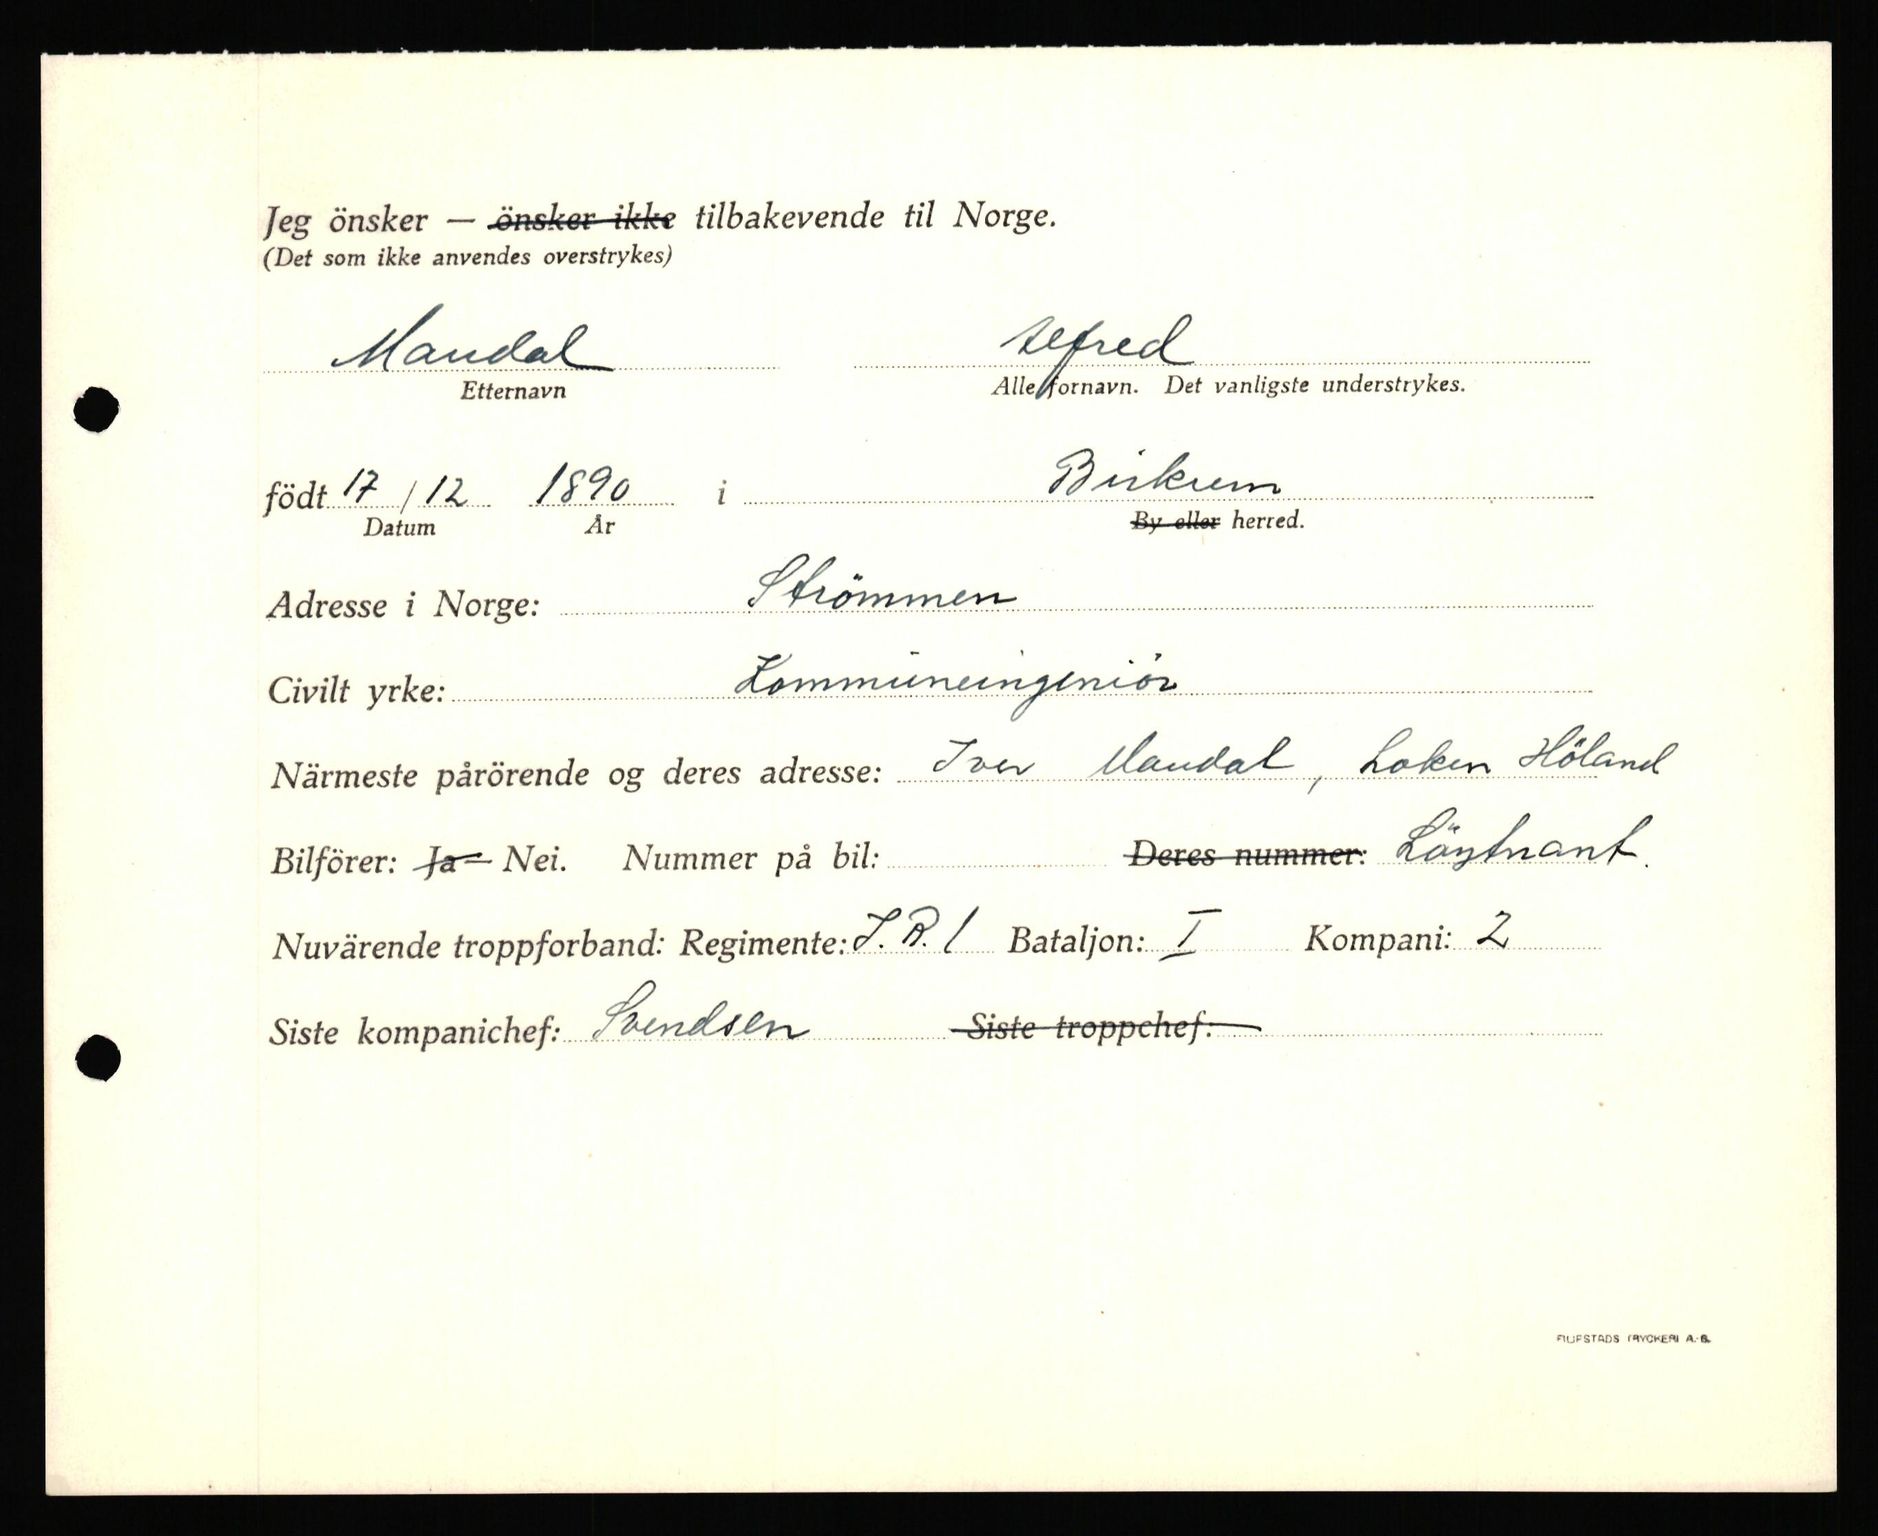 Jeg önsker — önsker ikke tilbakevende til Norge.
(Det som ikke anvendes overstrykes)
Maudal Alfred
Etternavn Alle fornavn. Det vanligste understrykes.
födt 17/12 1890 i Birkrem
Datum År By eller herred.
Adresse i Norge: Strömmen
Civilt yrke: Kommuneingeniör
Närmeste pårörende og deres adresse: Iver Maudal, Løken Höland
Bilförer: Ja — Nei. Nummer på bil: Deres nummer: Löytnant.
Nuvärende troppforband: Regimente: I.R.1 Bataljon: I Kompani: 2
Siste kompanichef: Svendsen Siste troppchef:
FILIPSTADS TRYCKERI A.-B.